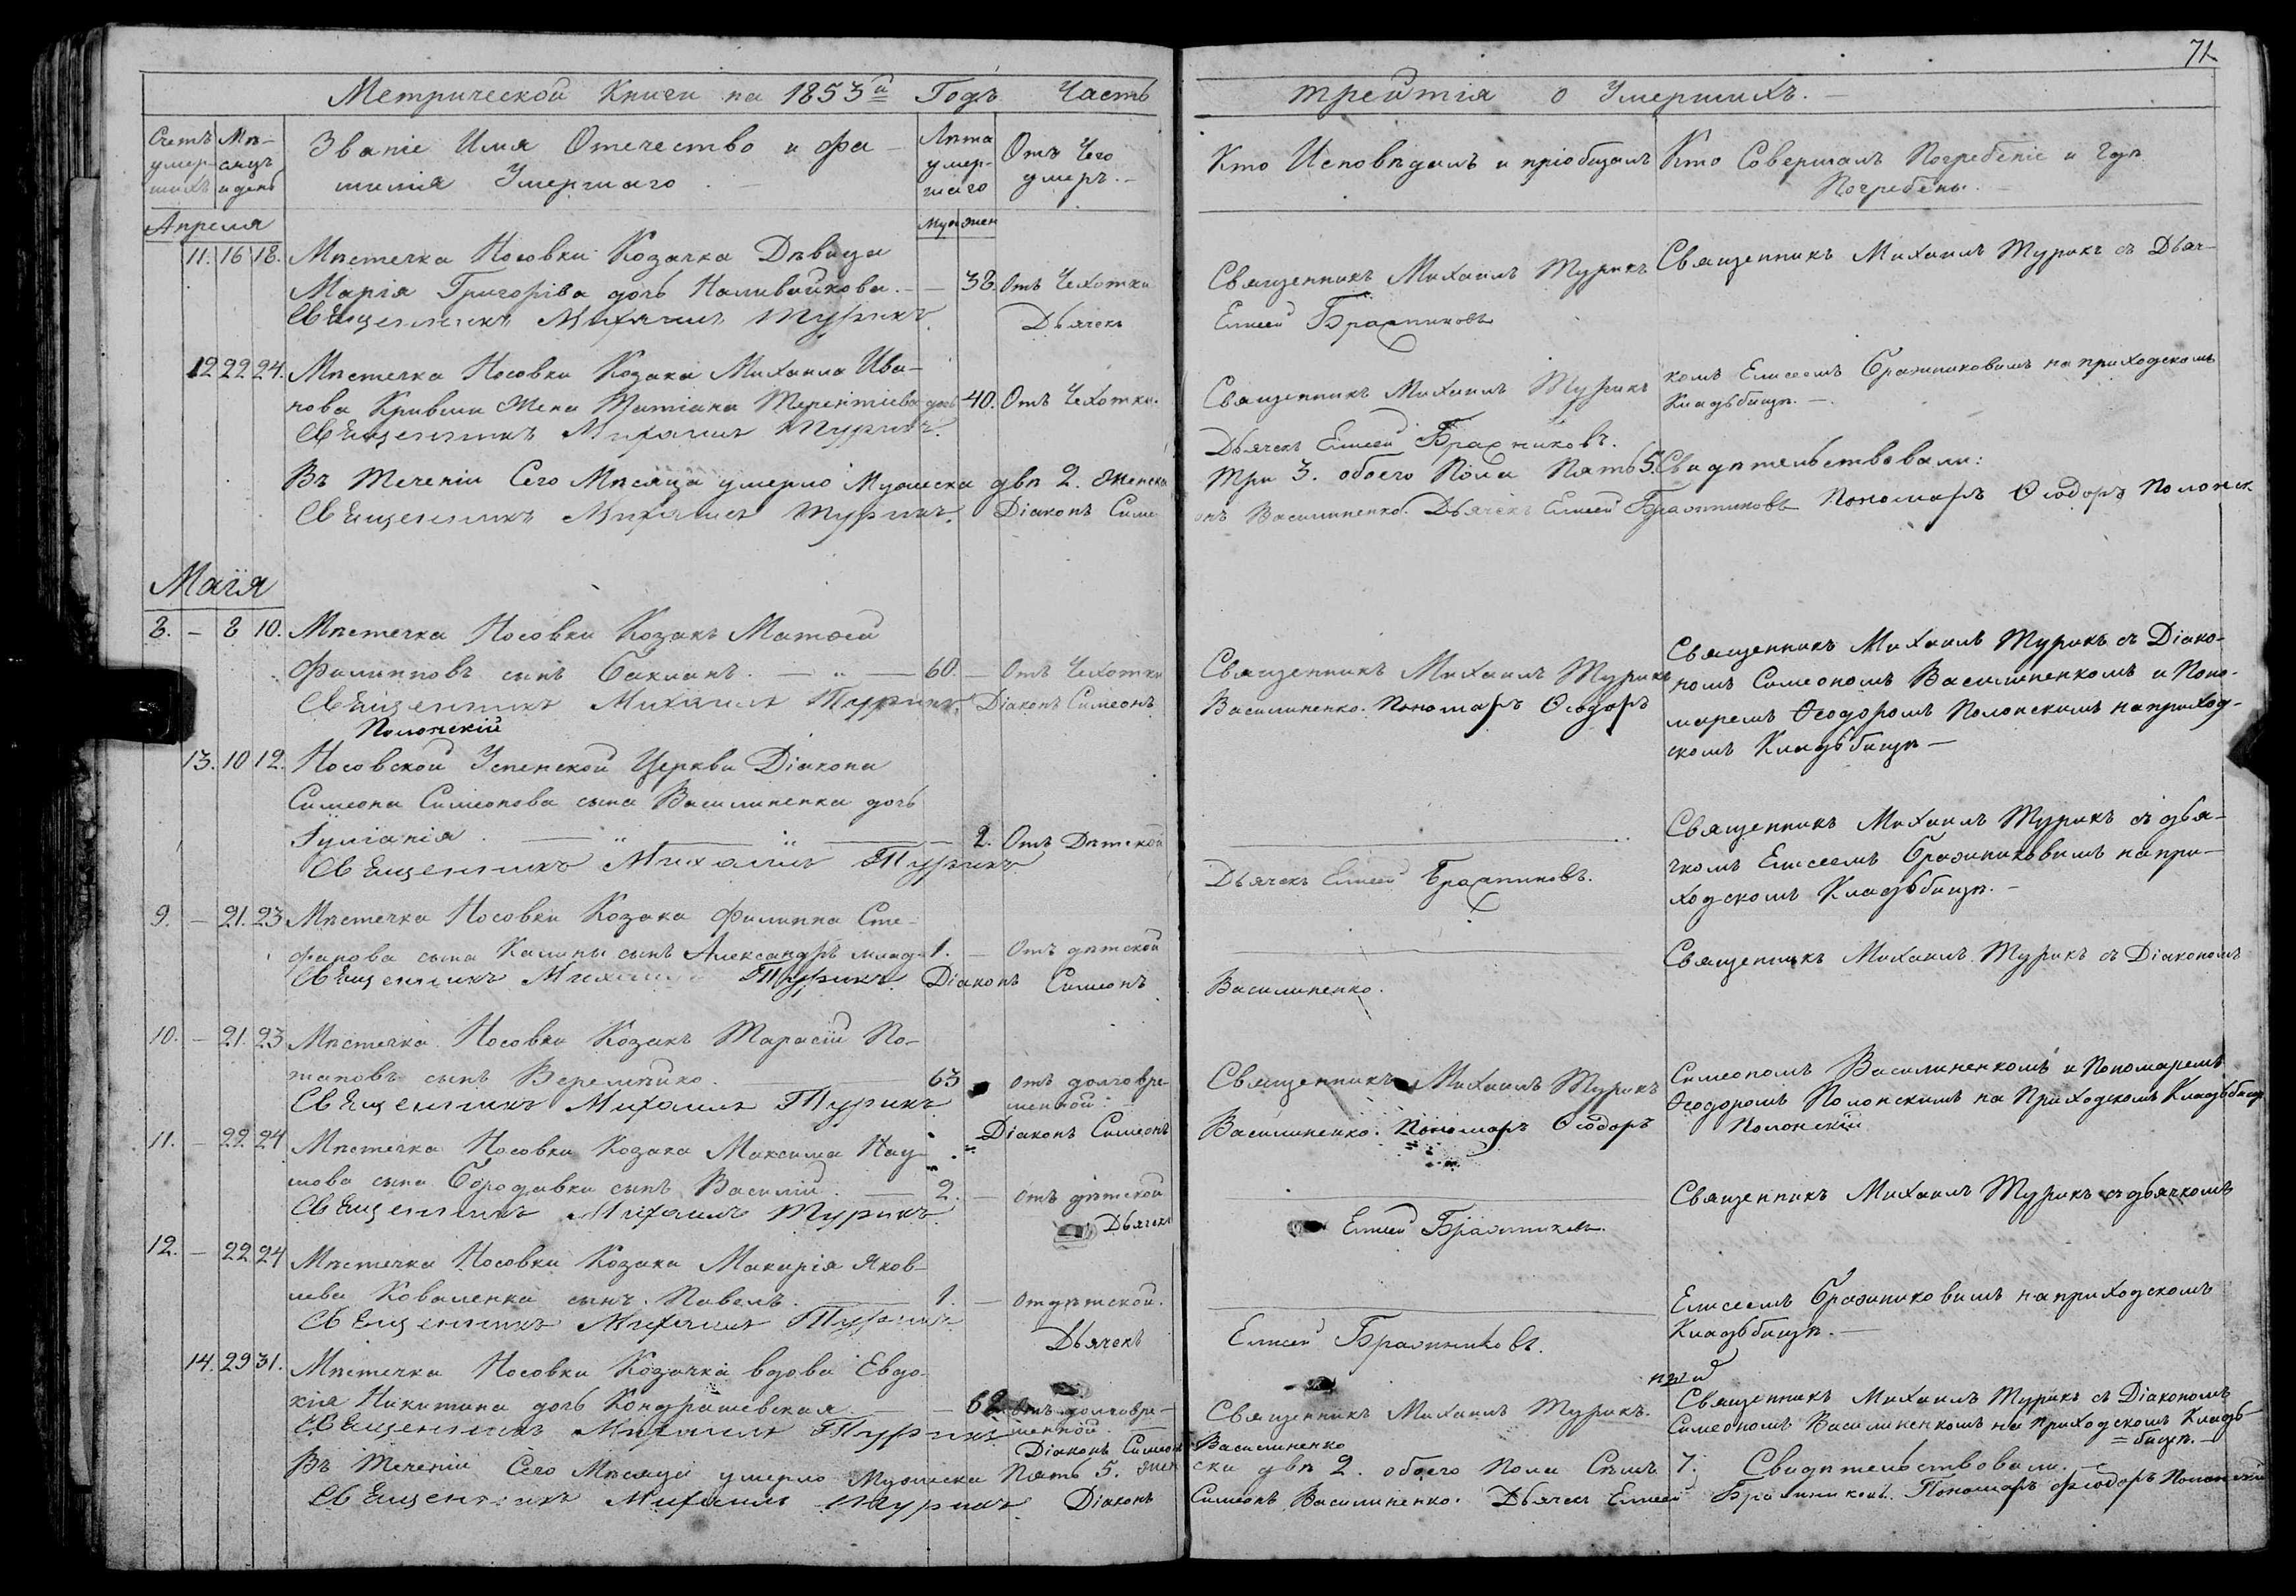 71
Метрической Книги на 1853й Годъ Часть
третія о Умершихъ.
Счетъ умер-шихъ
Мѣ-сяцъ и день
Званіе Имя Отечество и фа-
милія Умершаго.
Лѣта умер-шаго
Отъ Чего умеръ.
Кто Исповѣдалъ и пріобщалъ
Кто Совершалъ Погребеніе и Гдѣ
Погребены.
Апреля
муж жен
11. 16 18. Мѣстечка Носовки Козачка Дѣвица
Марія Григоріва дочь Наливайкова. — 38. Отъ Чехотки
Священникъ Михаилъ Турикъ
Священникъ Михаилъ Турикъ съ Дьяч-
Священникъ Михаилъ Турикъ Дьячекъ
Елисей Бражниковъ
12 22 24. Мѣстечка Носовки Козака Михаила Ива-
нова Кривши Жена Татіана Терентіева дочь 40. Отъ Чехотки.
Священникъ Михаилъ Турикъ
комъ Елисеемъ Бражниковымъ на приходскомъ
Кладьбищѣ. —
Священникъ Михаилъ Турикъ.
Дьячекъ Елисей Бражниковъ.
Въ Теченіи Сего Мѣсяца умерло Мужеска двѣ 2. Женска
Три 3. обоего Пола Пять 5. Свидѣтельствовали:
Священникъ Михаилъ Турикъ. Діаконъ Симе
онъ Василиненко. Дьячекъ Елисей Бражниковъ Пономарь Ѳеодоръ Полонск
Маія
8. — 8 10. Мѣстечка Носовки Козакъ Матѳей
Филипповъ сынъ Бакланъ. — „ — 60. — Отъ Чехотки
Священникъ Михаилъ Турикъ
Священникъ Михаилъ Турикъ съ Діако-
номъ Симеономъ Василиненкомъ и Поно-
маремъ Ѳеодоромъ Полонскимъ на приход-
скомъ Кладьбищѣ —
Священникъ Михаилъ Турикъ. Діаконъ Симеонъ
Василиненко. Пономарь Ѳеодоръ
Полонскій
13. 10 12. Носовской Успенской Церкви Діакона
Симеона Симеонова сына Василиненка дочь
Іуліанія. — „ — „ — 2. Отъ Дѣтской
Священникъ Михаилъ Турикъ съ дья-
чкомъ Елисеемъ Бражниковымъ на при-
ходскомъ Кладьбищѣ. —
Священникъ Михаилъ Турикъ.
Дьячекъ Елисей Бражниковъ.
9. — 21. 23 Мѣстечка Носовки Козака Филиппа Сте-
фанова сына Калины сынъ Александръ млад. 1. — Отъ дѣтской
Священникъ Михаилъ Турикъ съ Діакономъ
Священникъ Михаилъ Турикъ Діаконъ Симеонъ
Василиненко.
10. — 21. 23 Мѣстечка Носовки Козакъ Тарасій По-
таповъ сынъ Веремѣйко. 63 отъ долговре-
менной.
Священникъ Михаилъ Турикъ
Симеономъ Василиненкомъ и Пономаремъ
Ѳеодоромъ Полонскимъ на Приходскомъ Кладьбищѣ
Священникъ Михаилъ Турикъ Діаконъ Симеонъ
Василиненко. Пономарь Ѳеодоръ Полонскій
11. — 22. 24 Мѣстечка Носовки Козака Максима Нау-
мова сына Бородавки сынъ Василій. — 2. — отъ дѣтской
Священникъ Михаилъ Турикъ съ дьячкомъ
Священникъ Михаилъ Турикъ Дьячекъ
Елисей Бражниковъ.
12. — 22 24 Мѣстечка Носовки Козака Макарія Яков-
лева Коваленка сынъ Павелъ. — 1. — отъ дѣтской.
Елисеемъ Бражниковимъ на приходскомъ
Кладьбищѣ. —
Священникъ Михаилъ Турикъ Дьячекъ
Елисей Бражниковъ.
14. 29 31. Мѣстечка Носовки Козачка вдова Евдо-
кія Никитина дочь Кондрашевская. — отъ долговре-
менной.
Священникъ Михаилъ Турикъ.
Священникъ Михаилъ Турикъ съ Діакономъ
Симеономъ Василиненкомъ на Приходскомъ Кладь-
бищѣ. —
Священникъ Михаилъ Турикъ Діаконъ Симеонъ
Василиненко
Въ Теченіи Сего Мѣсяца умерло Мужеска Пять 5. жен
ска двѣ 2. обоего Пола Семъ 7. Свидѣтельствовали.
Священникъ Михаилъ Турикъ Діаконъ
Симеонъ Василиненко. Дьячекъ Елисей Бражниковъ. Пономарь Ѳеодоръ Полонскій